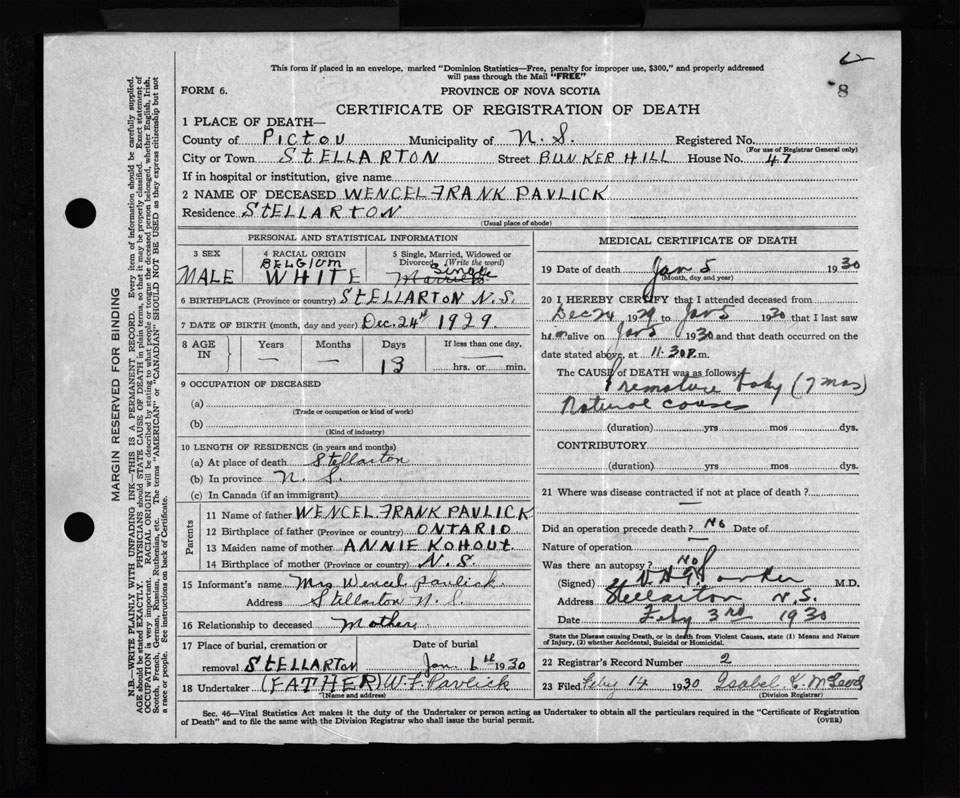 8
This form if placed in an envelope, marked "Dominion Statistics—Free, penalty for improper use, $300," and properly addressed
will pass through the Mail "FREE"
FORM 6.
PROVINCE OF NOVA SCOTIA
CERTIFICATE OF REGISTRATION OF DEATH
1 PLACE OF DEATH—
County of PICTOU Municipality of N. S. Registered No.
(For use of Registrar General only)
City or Town STELLARTON Street BUNKER HILL House No. 47
If in hospital or institution, give name
2 NAME OF DECEASED WENCEL FRANK PAVLICK
Residence STELLARTON
(Usual place of abode)
PERSONAL AND STATISTICAL INFORMATION
3 SEX
MALE
4 RACIAL ORIGIN
BELGIUM
WHITE
5 Single, Married, Widowed or
Divorced (Write the word)
Single
Married
6 BIRTHPLACE (Province or country) STELLARTON N.S.
7 DATE OF BIRTH (month, day and year) Dec. 24th 1929.
8 AGE
IN
Years
—
Months
—
Days
13
If less than one day,
hrs. or min.
9 OCCUPATION OF DECEASED
(a)
(Trade or occupation or kind of work)
(b)
(Kind of industry)
10 LENGTH OF RESIDENCE (in years and months)
(a) At place of death Stellarton
(b) In province N. S.
(c) In Canada (if an immigrant)
Parents
11 Name of father WENCEL FRANK PAVLICK
12 Birthplace of father (Province or country) ONTARIO
13 Maiden name of mother ANNIE KOHOUT
14 Birthplace of mother N.S.
15 Informant's name Mrs Wencel Pavlick
Address Stellarton N. S.
16 Relationship to deceased Mother
17 Place of burial, cremation or
removal STELLARTON
Date of burial
Jan 6th 1930
18 Undertaker (FATHER) W. F. Pavlick
(Name and address)
MEDICAL CERTIFICATE OF DEATH
19 Date of death Jan 5 1930
(Month, day and year)
20 I HEREBY CERTIFY that I attended deceased from
Dec 24 1929 to Jan 5 1930 that I last saw
him alive on Jan 5 1930 and that death occurred on the
date stated above, at 11.30 P.m.
The CAUSE of DEATH was as follows:
Premature baby (7 mos)
Natural causes
(duration) yrs mos dys.
CONTRIBUTORY
(duration) yrs mos dys.
21 Where was disease contracted if not at place of death?
—
Did an operation precede death? No Date of
Nature of operation —
Was there an autopsy? No
(Signed) M.D.
Address Stellarton N.S.
Date Feby 3rd 1930
State the Disease causing Death, or in death from Violent Causes, state (1) Means and Nature
of Injury, (2) whether Accidental, Suicidal or Homicidal.
22 Registrar's Record Number 2
23 Filed Feby 14 1930 Isabel McLeod
(Division Registrar)
Sec. 46—Vital Statistics Act makes it the duty of the Undertaker or person acting as Undertaker to obtain all the particulars required in the "Certificate of Registration
of Death" and to file the same with the Division Registrar who shall issue the burial permit.
(OVER)
MARGIN RESERVED FOR BINDING
N.B.—WRITE PLAINLY WITH UNFADING INK—THIS IS A PERMANENT RECORD. Every item of information should be carefully supplied.
AGE should be stated EXACTLY. PHYSICIANS should STATE CAUSE OF DEATH in plain terms, so that it may be properly classified. Exact statement of
OCCUPATION is very important. RACIAL ORIGIN will be described by stating to what people or tongue the deceased person belonged, whether English, Irish,
Scotch, French, German, Russian, Ruthenian, etc. The terms "AMERICAN" or "CANADIAN" SHOULD NOT BE USED as they express citizenship but not
a race or people. See instructions on back of Certificate.